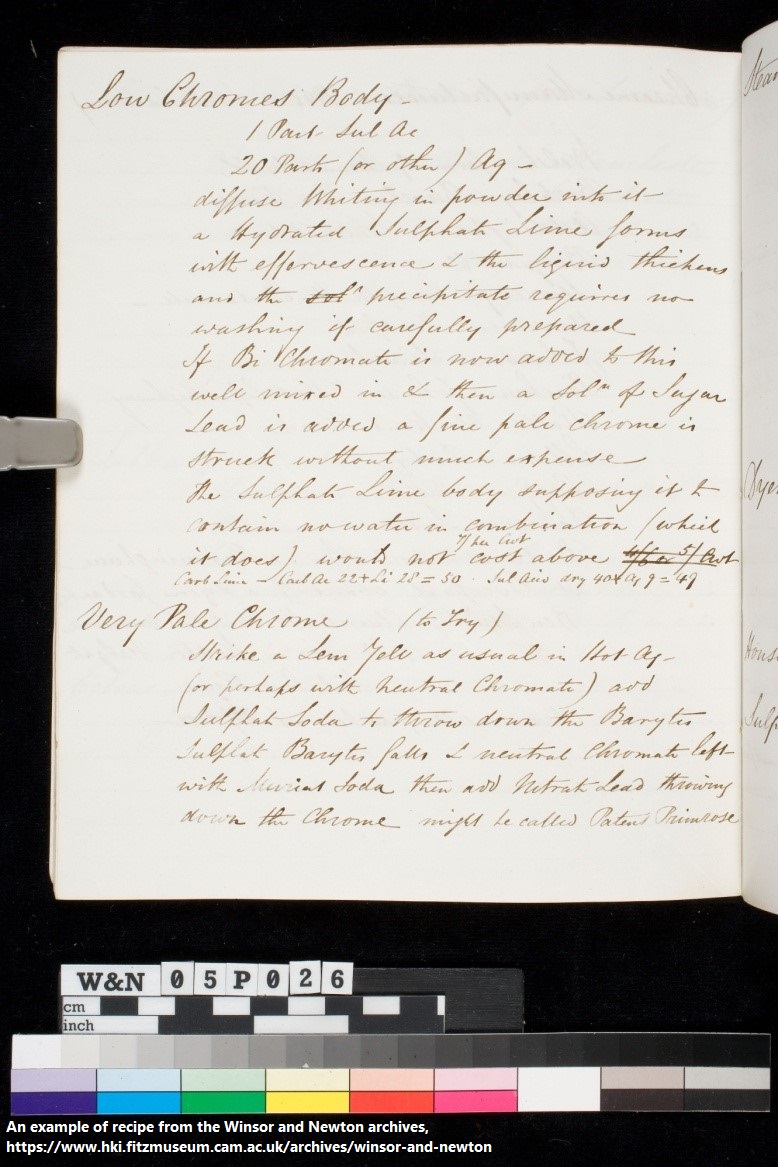 Low Chromes Body -
1 Part Sul Ac
20 Parts (or other) Aq -
diffuse Whiting in powder into it
a Hydrated Sulphate Lime forms
with effervescence & the liquid thickens
and the soln precipitate requires no
washing if carefully prepared
If Bi Chromate is now added to this
well mixed in & then a Soln of Sugar
Lead is added a fine pale chrome is
struck without much expense
The Sulphate Lime body supposing it to
contain no water in combination (which
7/ per Cwt
it does) would not cost above 5/ Cwt
Carb Lime - Carb Ac 22 + Li 28 = 50 . Sul Acid dry 40 + Aq 9 = 49
Very Pale Chrome (to Try)
Strike a Lem Yell as usual in Hot Aq -
(or perhaps with neutral Chromate) add
Sulphate Soda to throw down the Barytes
Sulphat Barytes falls & neutral Chromate left
with Muriat Soda then add Nitrate Lead throwing
down the Chrome might be called Patent Primrose
Stea
Dye
House
Sulp
W&N 05P026
cm
inch
An example of recipe from the Winsor and Newton archives,
https://www.hki.fitzmuseum.cam.ac.uk/archives/winsor-and-newton